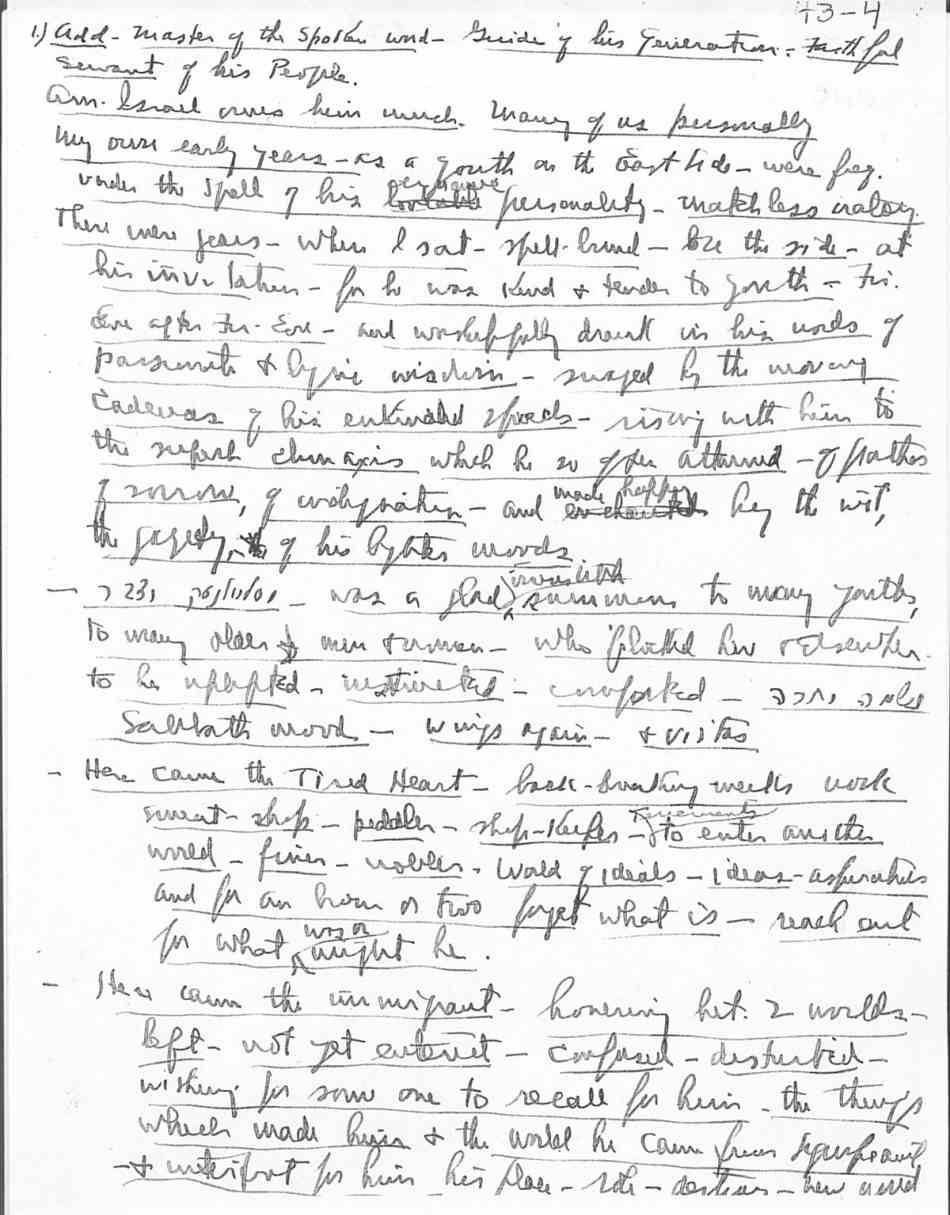 43-4
1.) Add - Master of the Spoken word - Guide of his Generation - Faithful
Servant of his People.
Am. Israel owes him much. Many of us personally
My own early years - as a youth on the East Side - were freq.
under the spell of his personality - matchless oratory.
There were years - when I sat - spell-bound - by the side - at
his invitation - for he was kind & tender to youth - Fri.
Eve after Fri. Eve - and worshipfully drank in his words of
passionate & lyric wisdom - swayed by the moving
Cadences of his enkindled speech - rising with him to
the superb climaxes which he so often attained - of pathos
of sorrow, of indignation - and made happy by the wit,
the gayety, of his lighter moods.
- was a glad, irresistible summons to many youths,
to many older men & women - who flocked here & elsewhere
to be uplifted - instructed - comforted -
Sabbath mood - wings again - & vistas
- Here came the Tired Heart - back-breaking weeks work
sweat-shop - peddler - shop-keeper - tenements - to enter another
world - finer - nobler - World of ideals - ideas - aspirations
and for an hour or two forget what is - reach out
for what was or might be.
- Here came the immigrant - hovering bet. 2 worlds -
left - not yet entered - confused - disturbed -
wishing for some one to recall for him - the things
which made him & the world he came from significant
- & interpret for him his place - role - destiny - new world